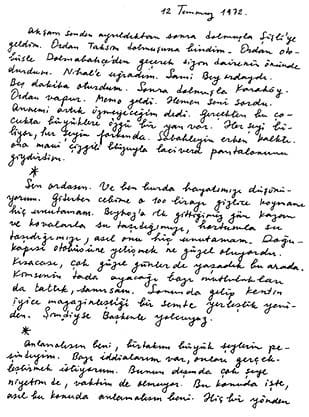 12 Temmuz 1972.
Akşam senden ayrıldıktan sonra dolmuşla Şişli'ye
geldim. Ordan Taksim dolmuşuna bindim. Ordan oto-
büsle Dolmabahçe'den geçerek siyon dairenin önünde
durdum. Nihal'e uğradım. Sami Bey ordaydı.
Beş dakika oturdum. Sonra dolmuşla Karaköy.
Ordan vapur. Memo geldi. Hemen seni sordu.
Annemi artık üzmeyeceğim dedi. Gerçekten bu ço-
cukta büyüklere özgü bir yan var. Her şeyi bi-
liyor, her şeyin farkında. Sabahleyin erken kalktı.
ona mavi çizgili bluzuyla lacivert pantalonunu
giydirdim.
*
Sen ordasın. Ve ben burda hayalimizi düşünü-
yorum. Giderken cebime o 100 lirayı gizlice koymanı
hiç unutamam. Beykoz'a ilk gittiğimiz gün kazan
ve kovalarla su taşıdığımızı, hortumla su
taşıdığımızı, asıl onu hiç unutamam. Doğu-
kapısı otobüsüne yetişmek ne güzel oluyordu.
Kısacası, çok güzel günler de yaşadık bu arada.
Kimsenin tada mayacağı bazı mutlulukları
da tattık, sanırsam. Sonunda gelip kentin
iyice magazinleştiği bir semte yerleştik yeni-
den. Şimdiyse Başkente yolcuyuz.
*
Anlamalısın beni, birtakım büyük şeylerin pe-
şindeyim. Bazı iddialarım var, onları gerçek-
leştirmek istiyorum. Bunun dışında çok şeye
niyetim de, vaktim de olmuyor. Bu konuda işte,
asıl bu konuda anlamalısın beni. Hiç bir yönden